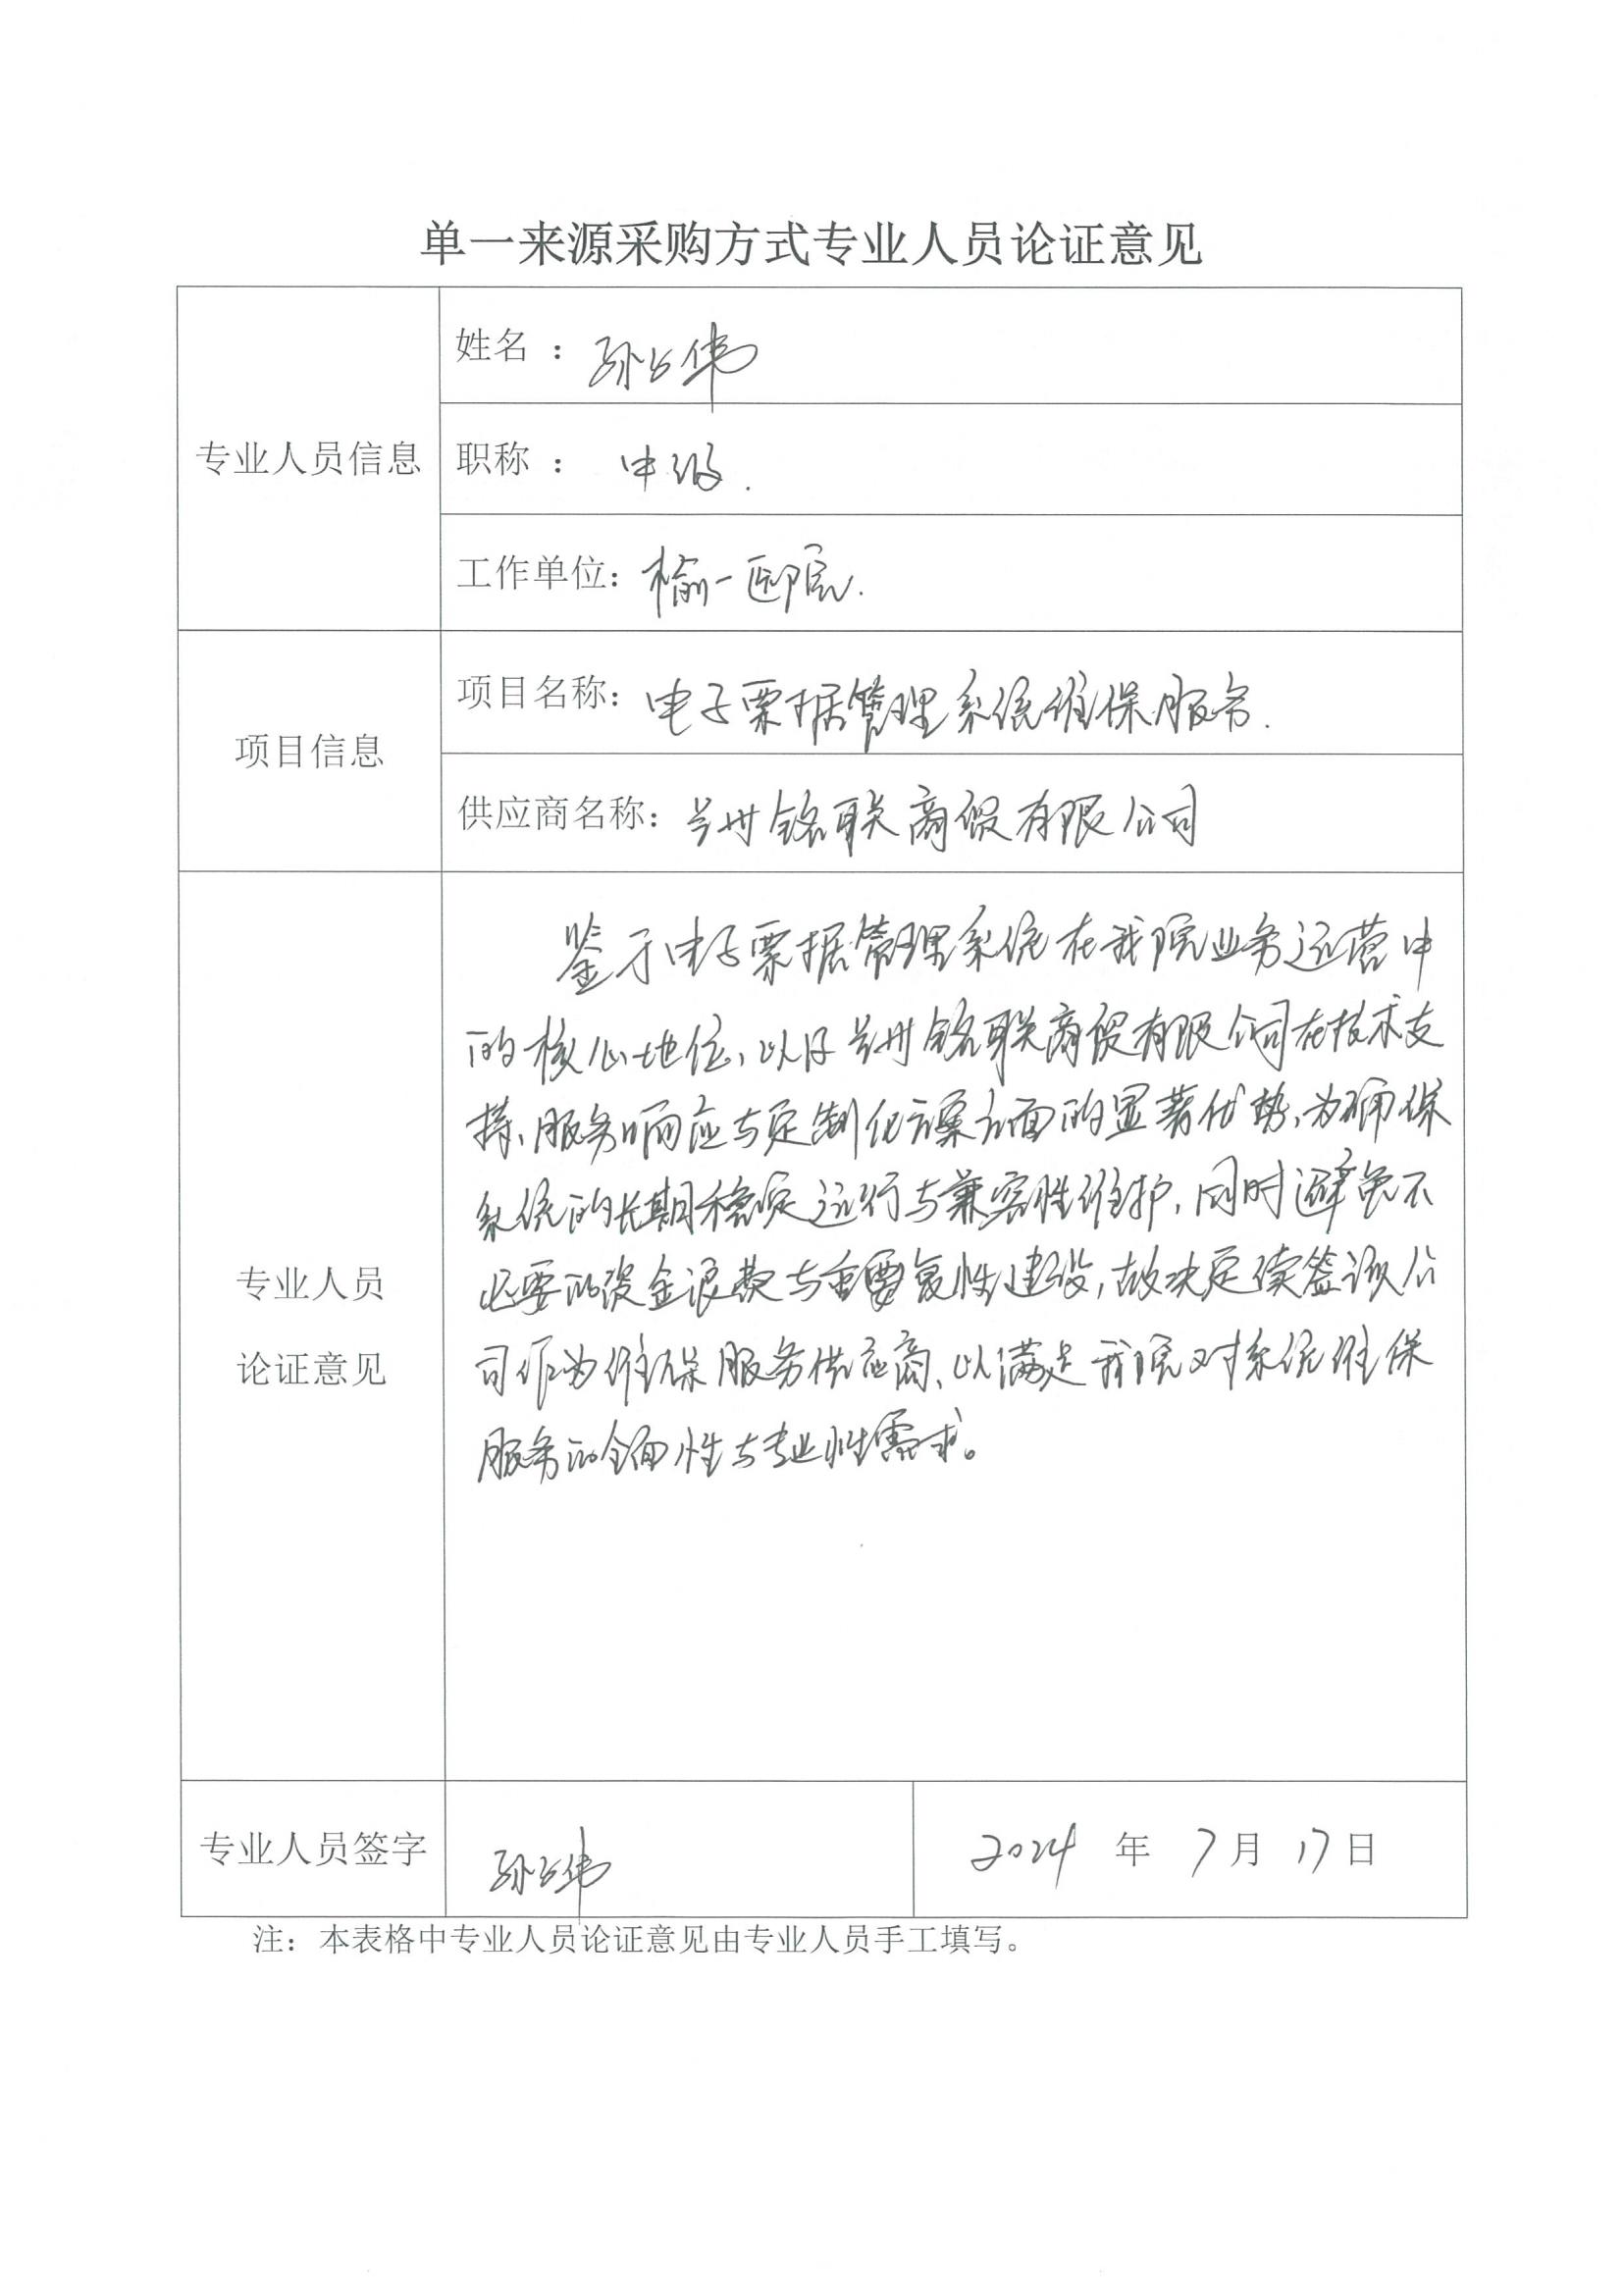 单一来源采购方式专业人员论证意见
专业人员信息
姓名 : 孙伟
职称 : 中级.
工作单位: 榆一医院.
项目信息
项目名称: 电子票据管理系统维保服务.
供应商名称: 兰州铭联商贸有限公司
专业人员
论证意见
鉴于电子票据管理系统在我院业务运营中
的核心地位、以及兰州铭联商贸有限公司在技术支
持、服务响应与定制化方案方面的显著优势、为确保
系统的长期稳定运行与兼容性维护,同时避免不
必要的资金浪费与重复性建设,故决定续签该公
司作为维保服务供应商、以满足我院对系统维保
服务的全面性与专业性需求。
专业人员签字
孙伟
2024 年 7 月 17 日
注: 本表格中专业人员论证意见由专业人员手工填写。